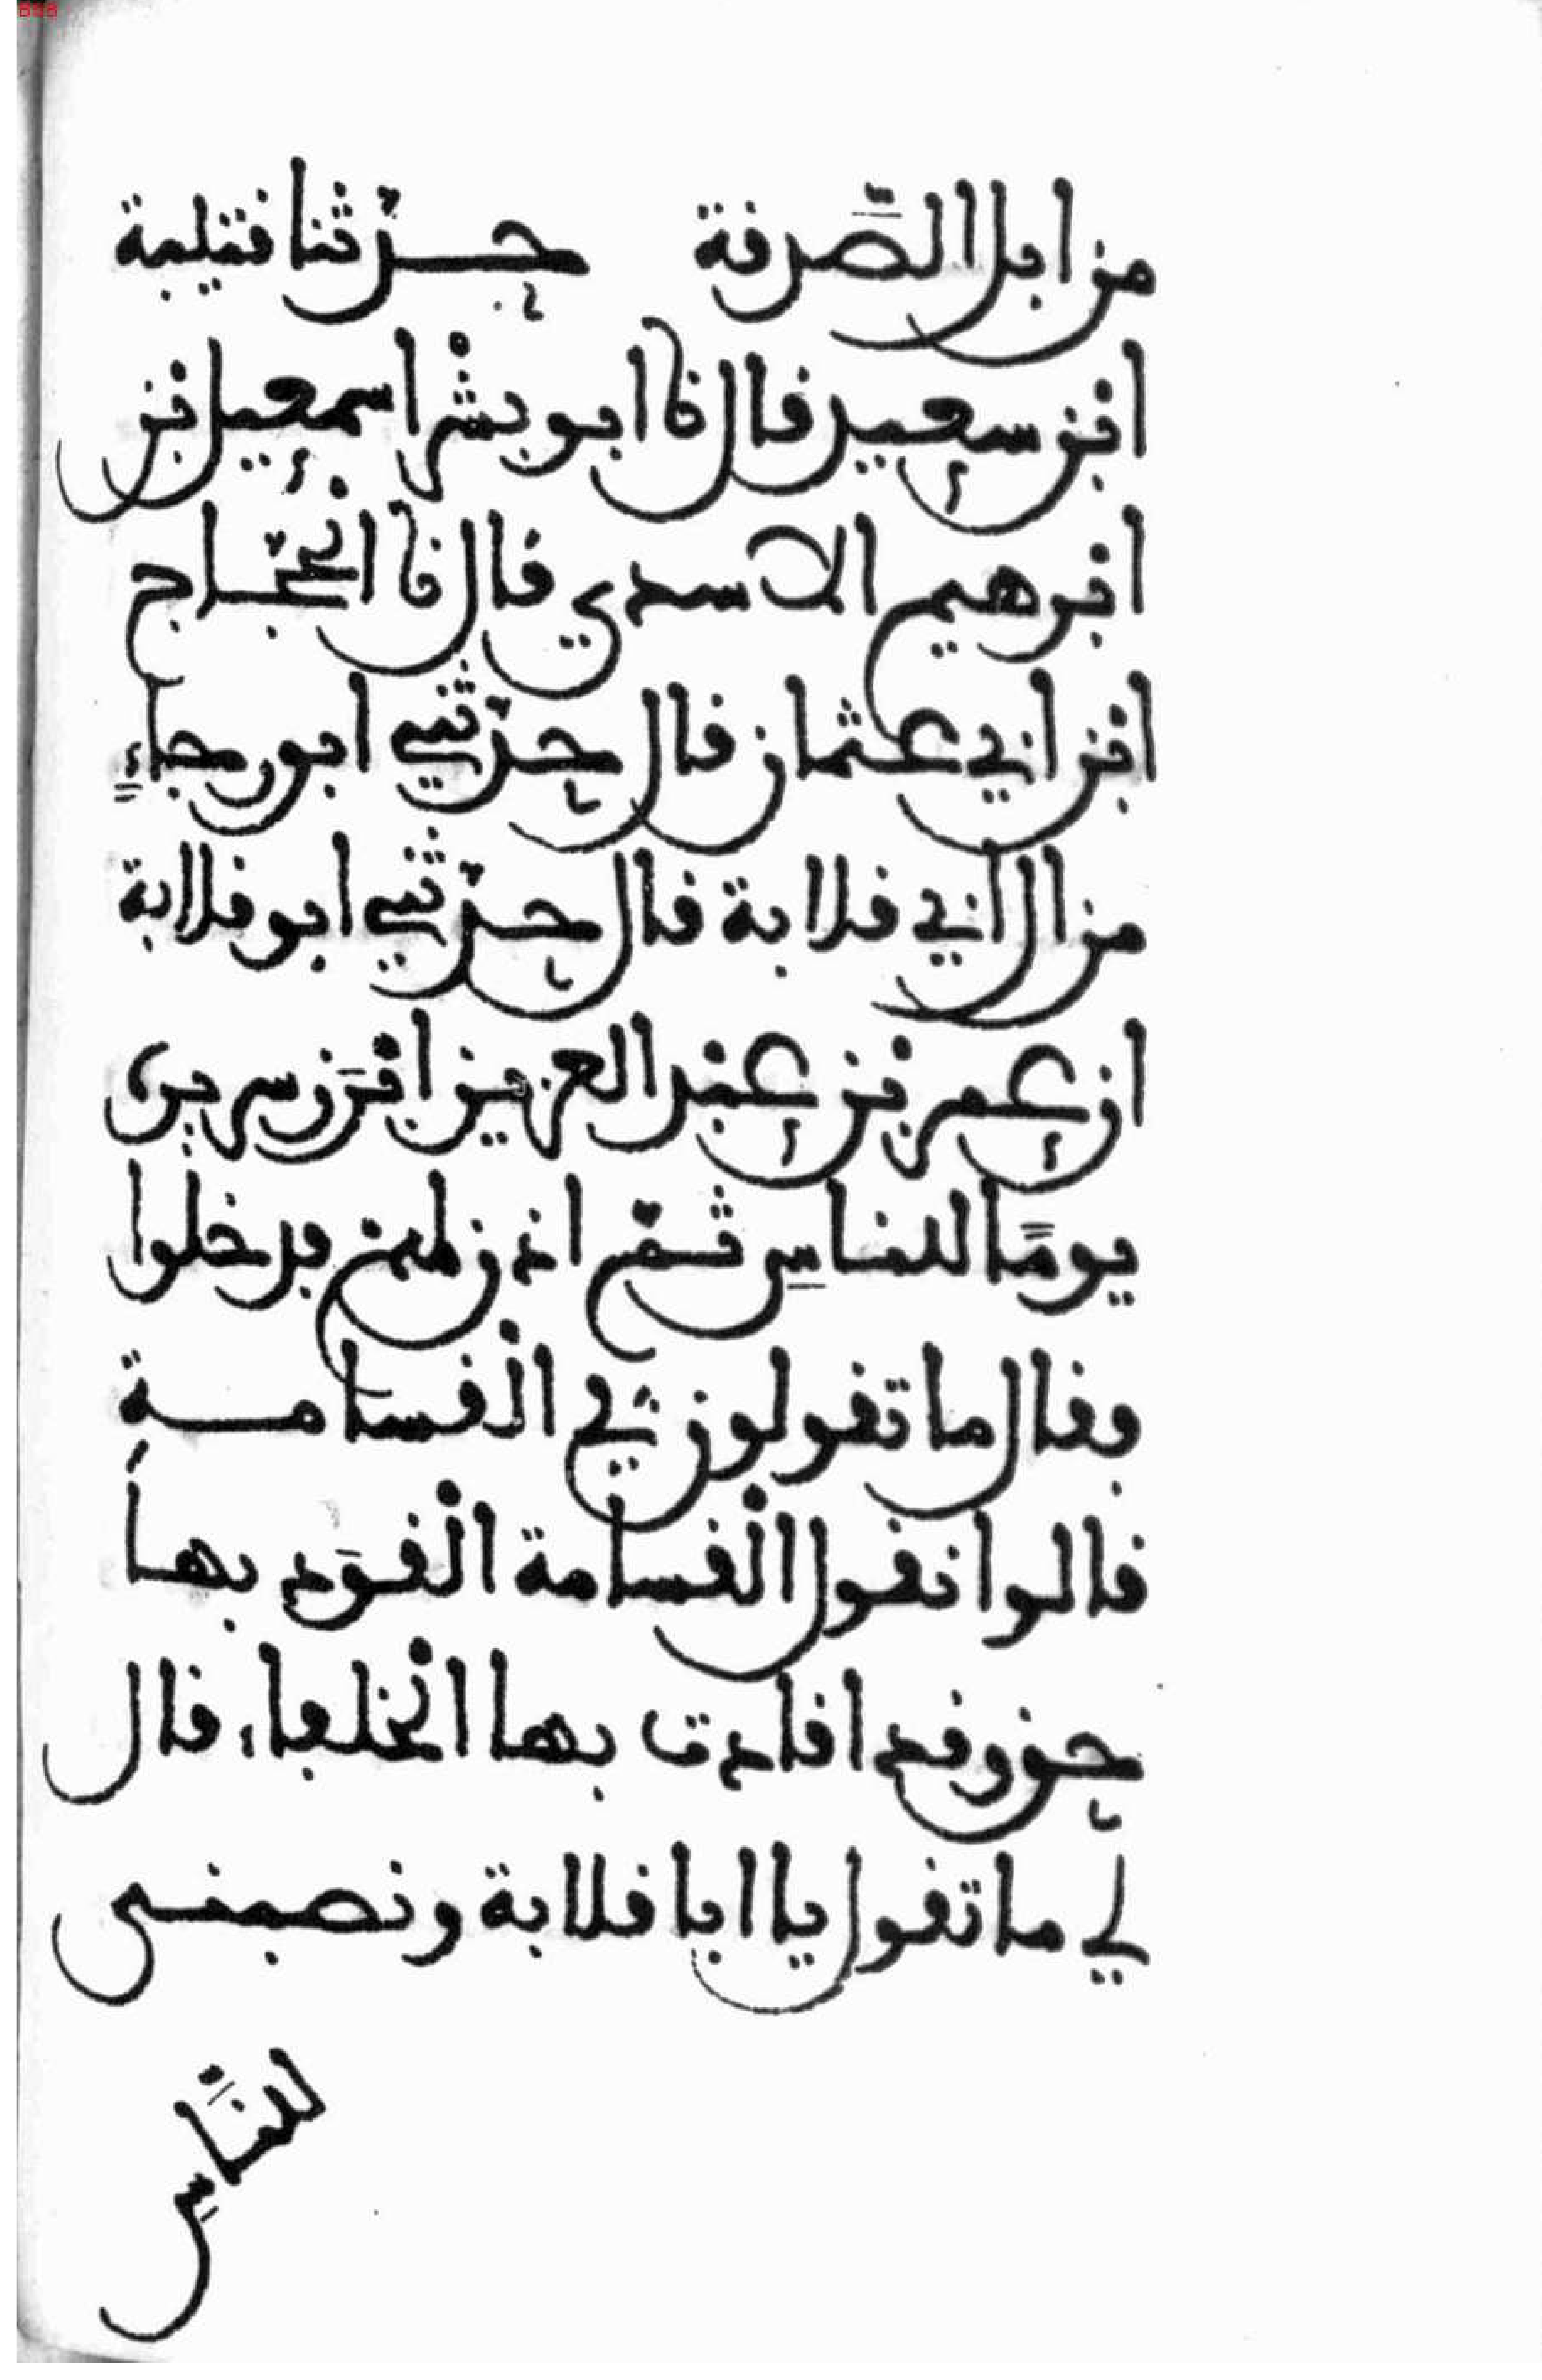 658
من ابل الصّدقة حدّثنا قتيبة
ابن سعيد قال نا ابو بشر اسمعيل بن
ابرهيم الاسدي قال نا الحجّاج
ابن ابي عثمان قال حدّثني ابو رجاءٍ
من ال ابي قلابة قال حدّثني ابو قلابة
ان عمر بن عبد العزيز ابرَز سريره
يومًا للناسِ ثمّ اذن لهم فدخلوا
وقال ما تقولون في القسامة
قالوا نقول القسامة القوَد بها
حق وقد اقادت بها الخلفاء، قال
لي ما تقول يا ابا قلابة ونصبني
للنَّاسِ